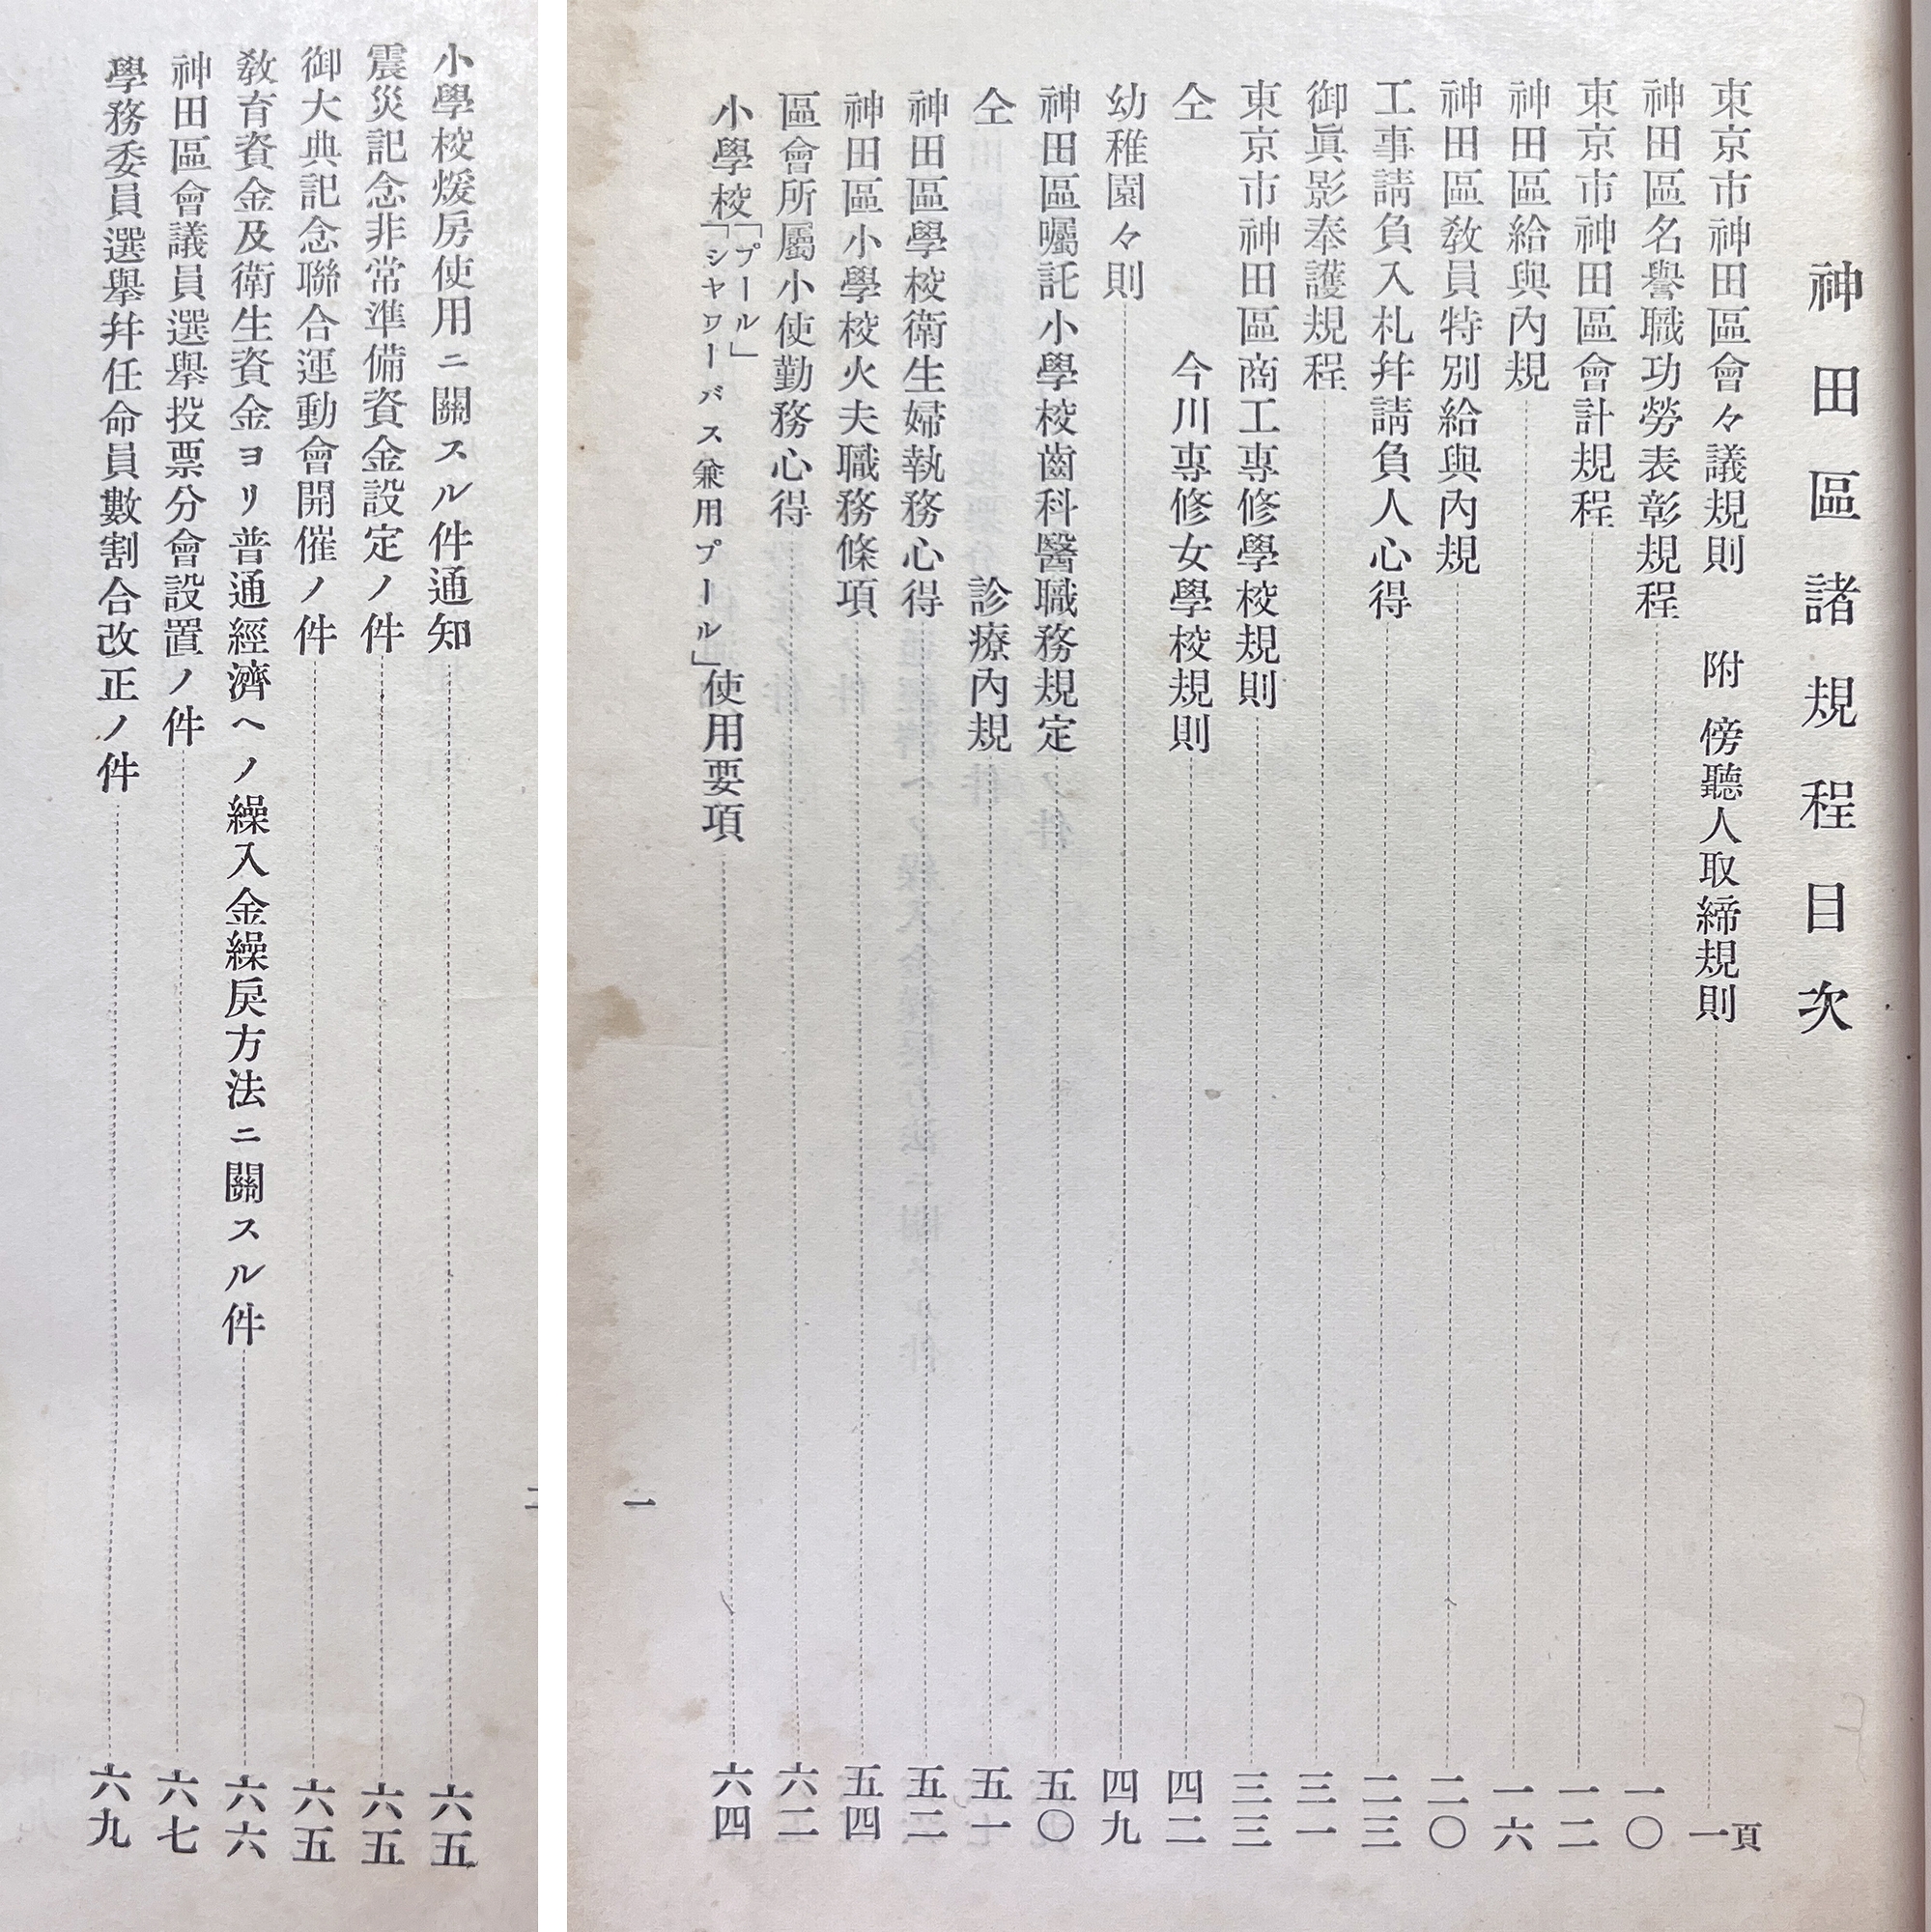 神田區諸規程目次
東京市神田區會々議規則 附 傍聽人取締規則 一頁
神田區名譽職功勞表彰規程 一〇
東京市神田區會計規程 一二
神田區給與內規 一六
神田區敎員特別給與內規 二〇
工事請負入札幷請負人心得 二三
御眞影奉護規程 三一
東京市神田區商工專修學校規則 三三
仝 今川專修女學校規則 四二
幼稚園々則 四九
神田區囑託小學校齒科醫職務規定 五〇
仝 診療內規 五一
神田區學校衛生婦執務心得 五二
神田區小學校火夫職務條項 五四
區會所屬小使勤務心得 六二
小學校「プール」「シャワーバス兼用プール」使用要項 六四
一
小學校煖房使用ニ關スル件通知 六五
震災記念非常準備資金設定ノ件 六五
御大典記念聯合運動會開催ノ件 六五
敎育資金及衛生資金ヨリ普通經濟ヘノ繰入金繰戾方法ニ關スル件 六六
神田區會議員選擧投票分會設置ノ件 六七
學務委員選擧幷任命員數割合改正ノ件 六九
二